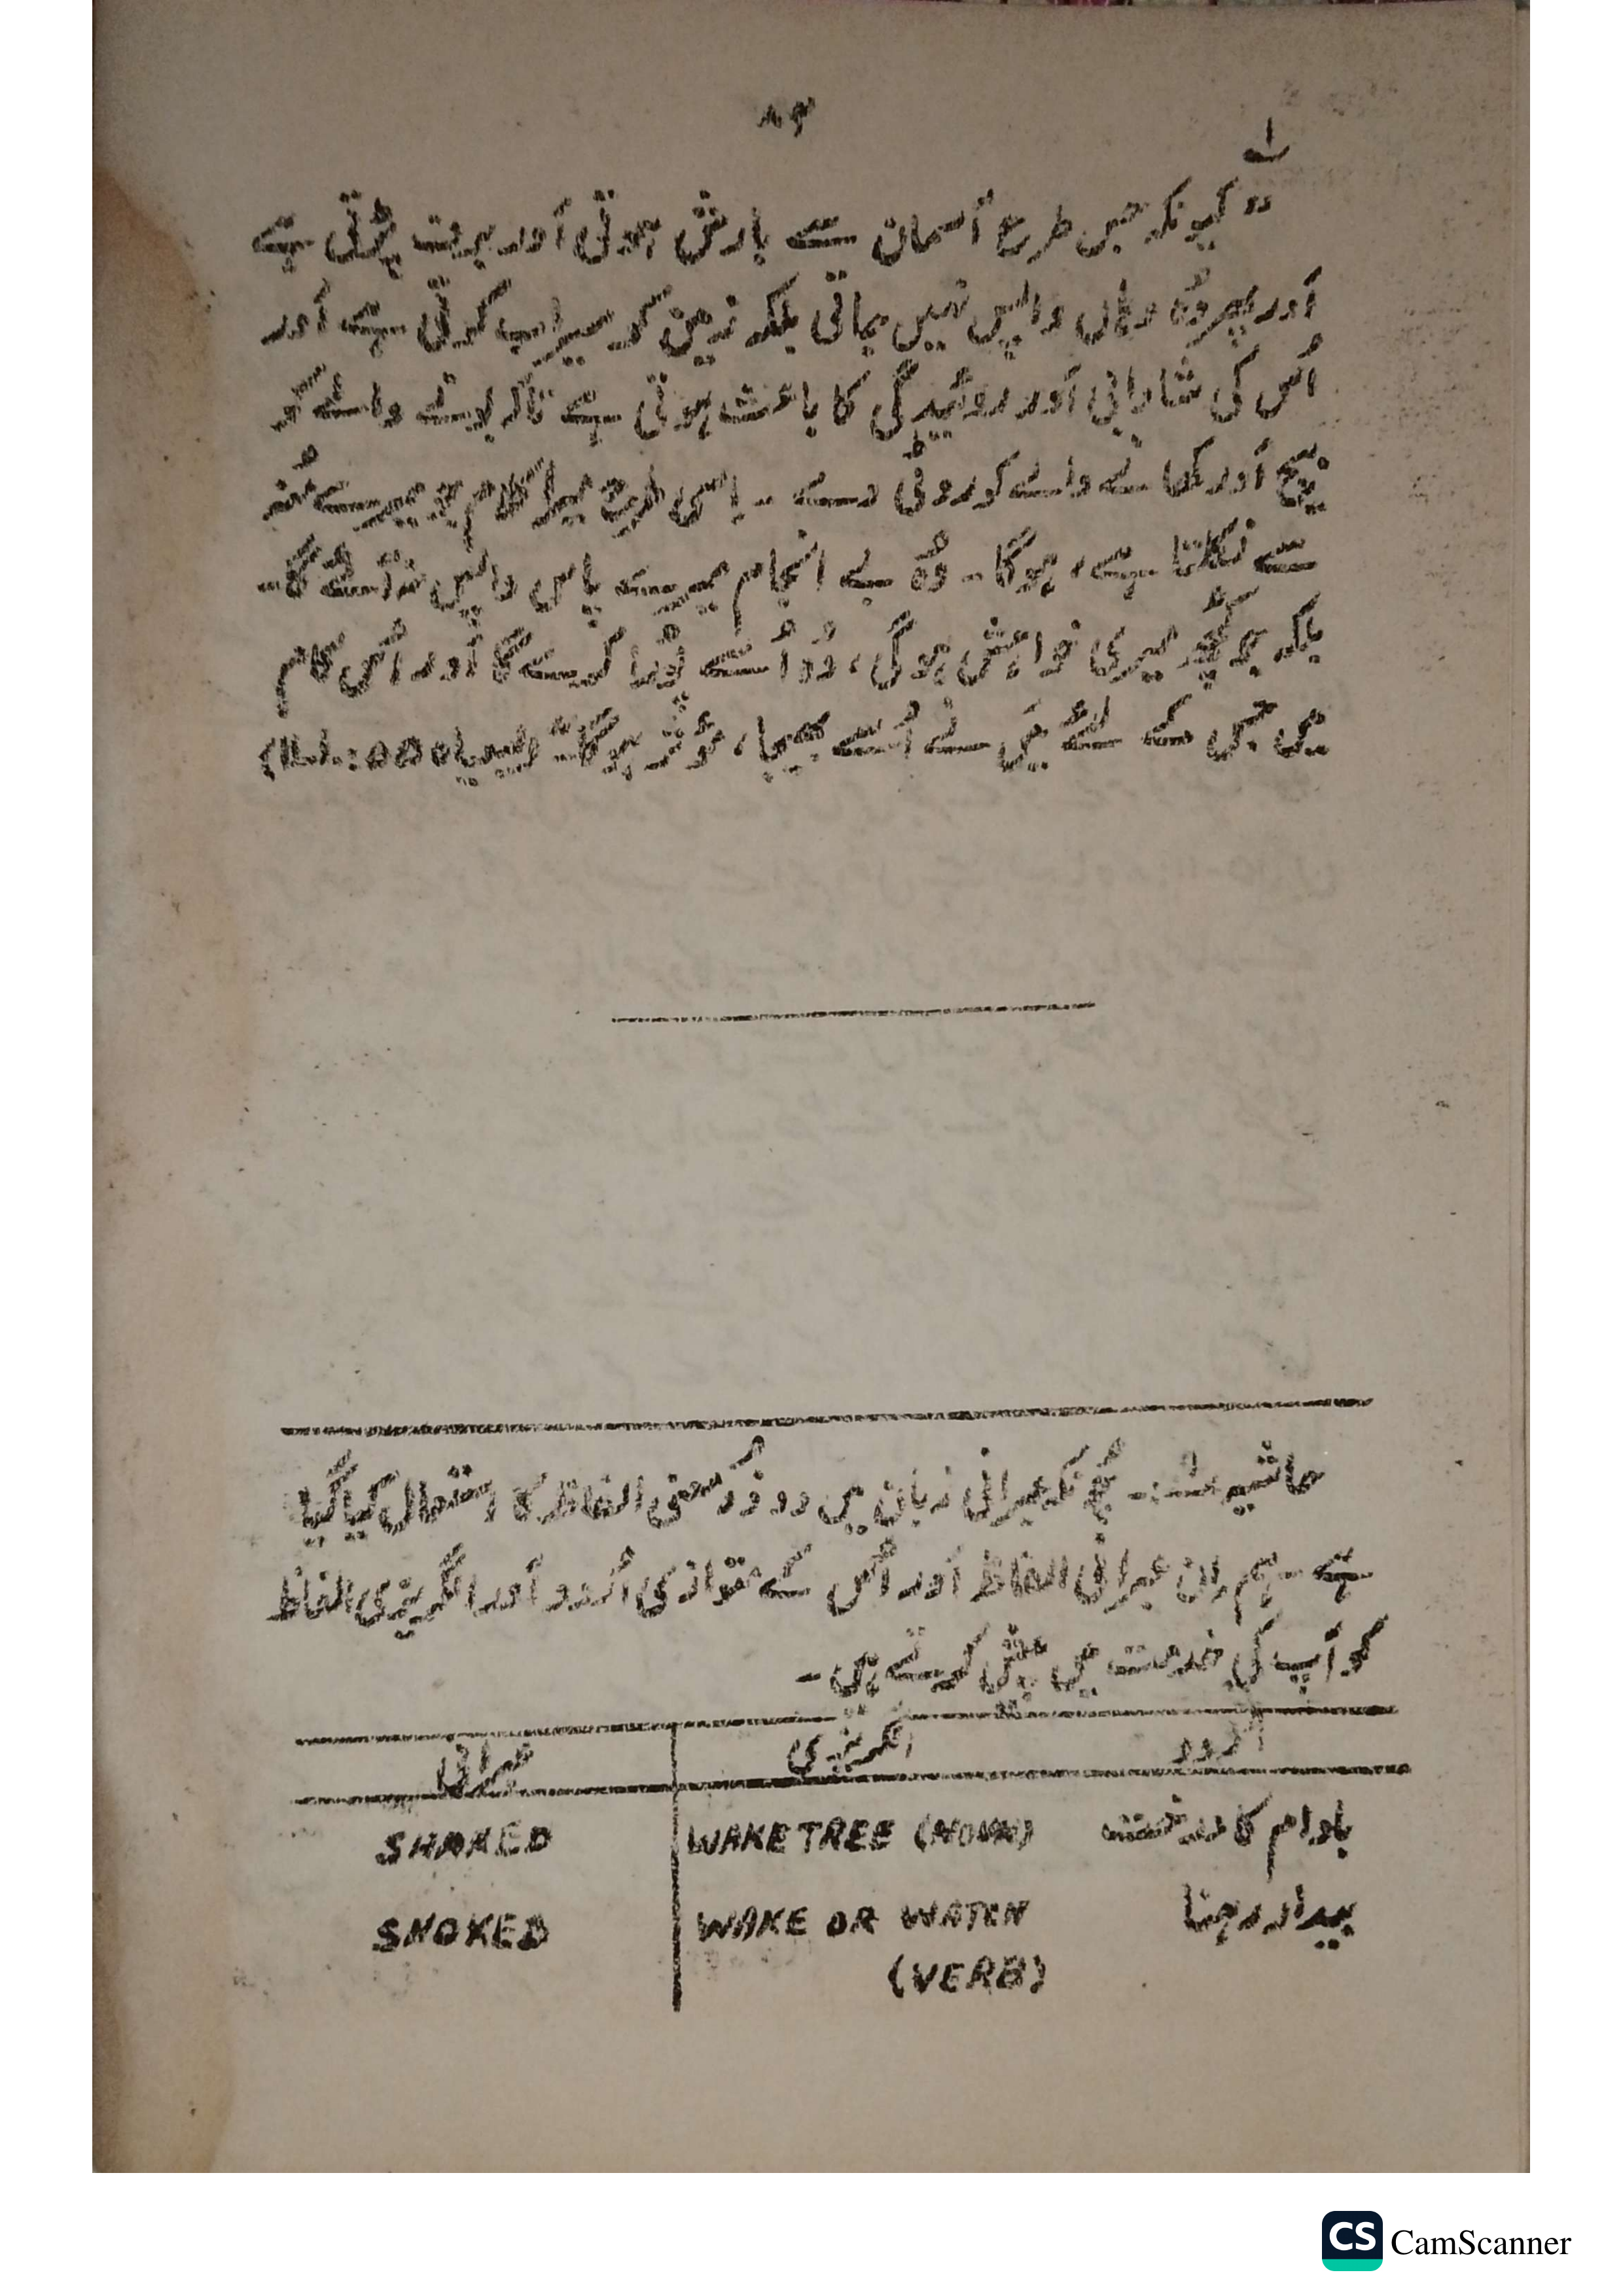 ۸۴
لے
"کیونکہ جس طرح آسمان سے بارش ہوتی اَور برف پڑتی ہے
اَور پھر وُہ وہاں واپس نہیں جاتی بلکہ زمین کو سیراب کرتی ہے اَور
اُس کی شادابی اَور روئیدگی کا باعث ہوتی ہے تاکہ بونے والے کو
بیج اَور کھانے والے کو روٹی دے ۔ اِسی طرح میرا کلام جو میرے مُنہ
سے نکلتا ہے، ہوگا ۔ وُہ بے انجام میرے پاس واپس نہ آئے گا۔
بلکہ جو کُچھ میری خواہش ہوگی، وُہ اُسے پُورا کرے گا اَور اُس کام
میں جس کے لئے مَیں نے اُسے بھیجا، مؤثر ہوگا۔" (یسیاہ ۵۵:
حاشیہ :۔ چُونکہ عبرانی زبان میں دو ذُو معنی الفاظ کا استعمال کیا گیا
ہے ۔ ہم اِن عبرانی الفاظ اَور اُس کے متوازی اُردو اَور انگریزی الفاظ
کو آپ کی خدمت میں پیش کرتے ہیں ۔
اُردو انگریزی عبرانی
بادام کا درخت WAKE TREE (NOUN) SHAKED
بیدار رہنا WAKE OR WATCH SHOKED
(VERB)
CS CamScanner